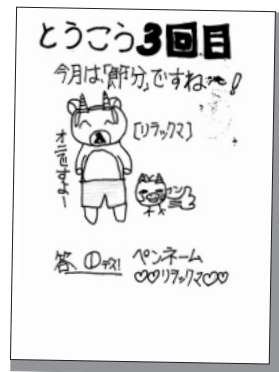 とうこう3回目
今月は、「節分」ですねー!
[リラックマ]
オニですよー
答、①デス!
ペンネーム
♡♡リラックマ♡♡